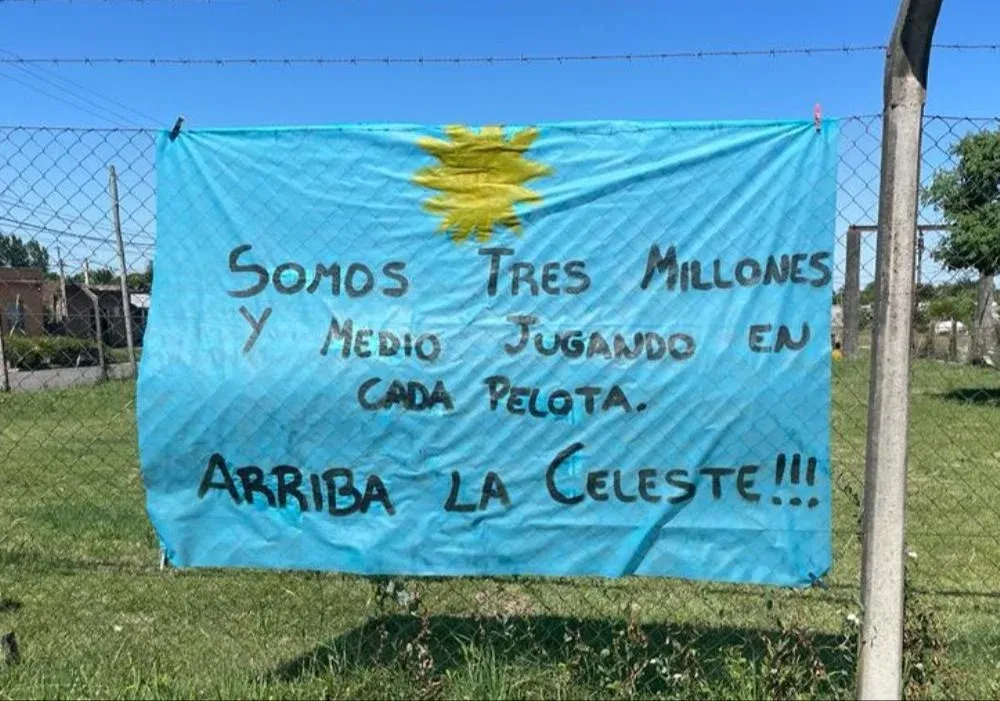 SOMOS TRES MILLONES
Y MEDIO JUGANDO EN
CADA PELOTA.
ARRIBA LA CELESTE!!!